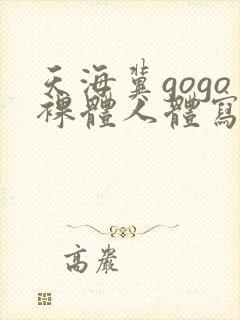 天海冀gogo
裸體人體寫
高嚴